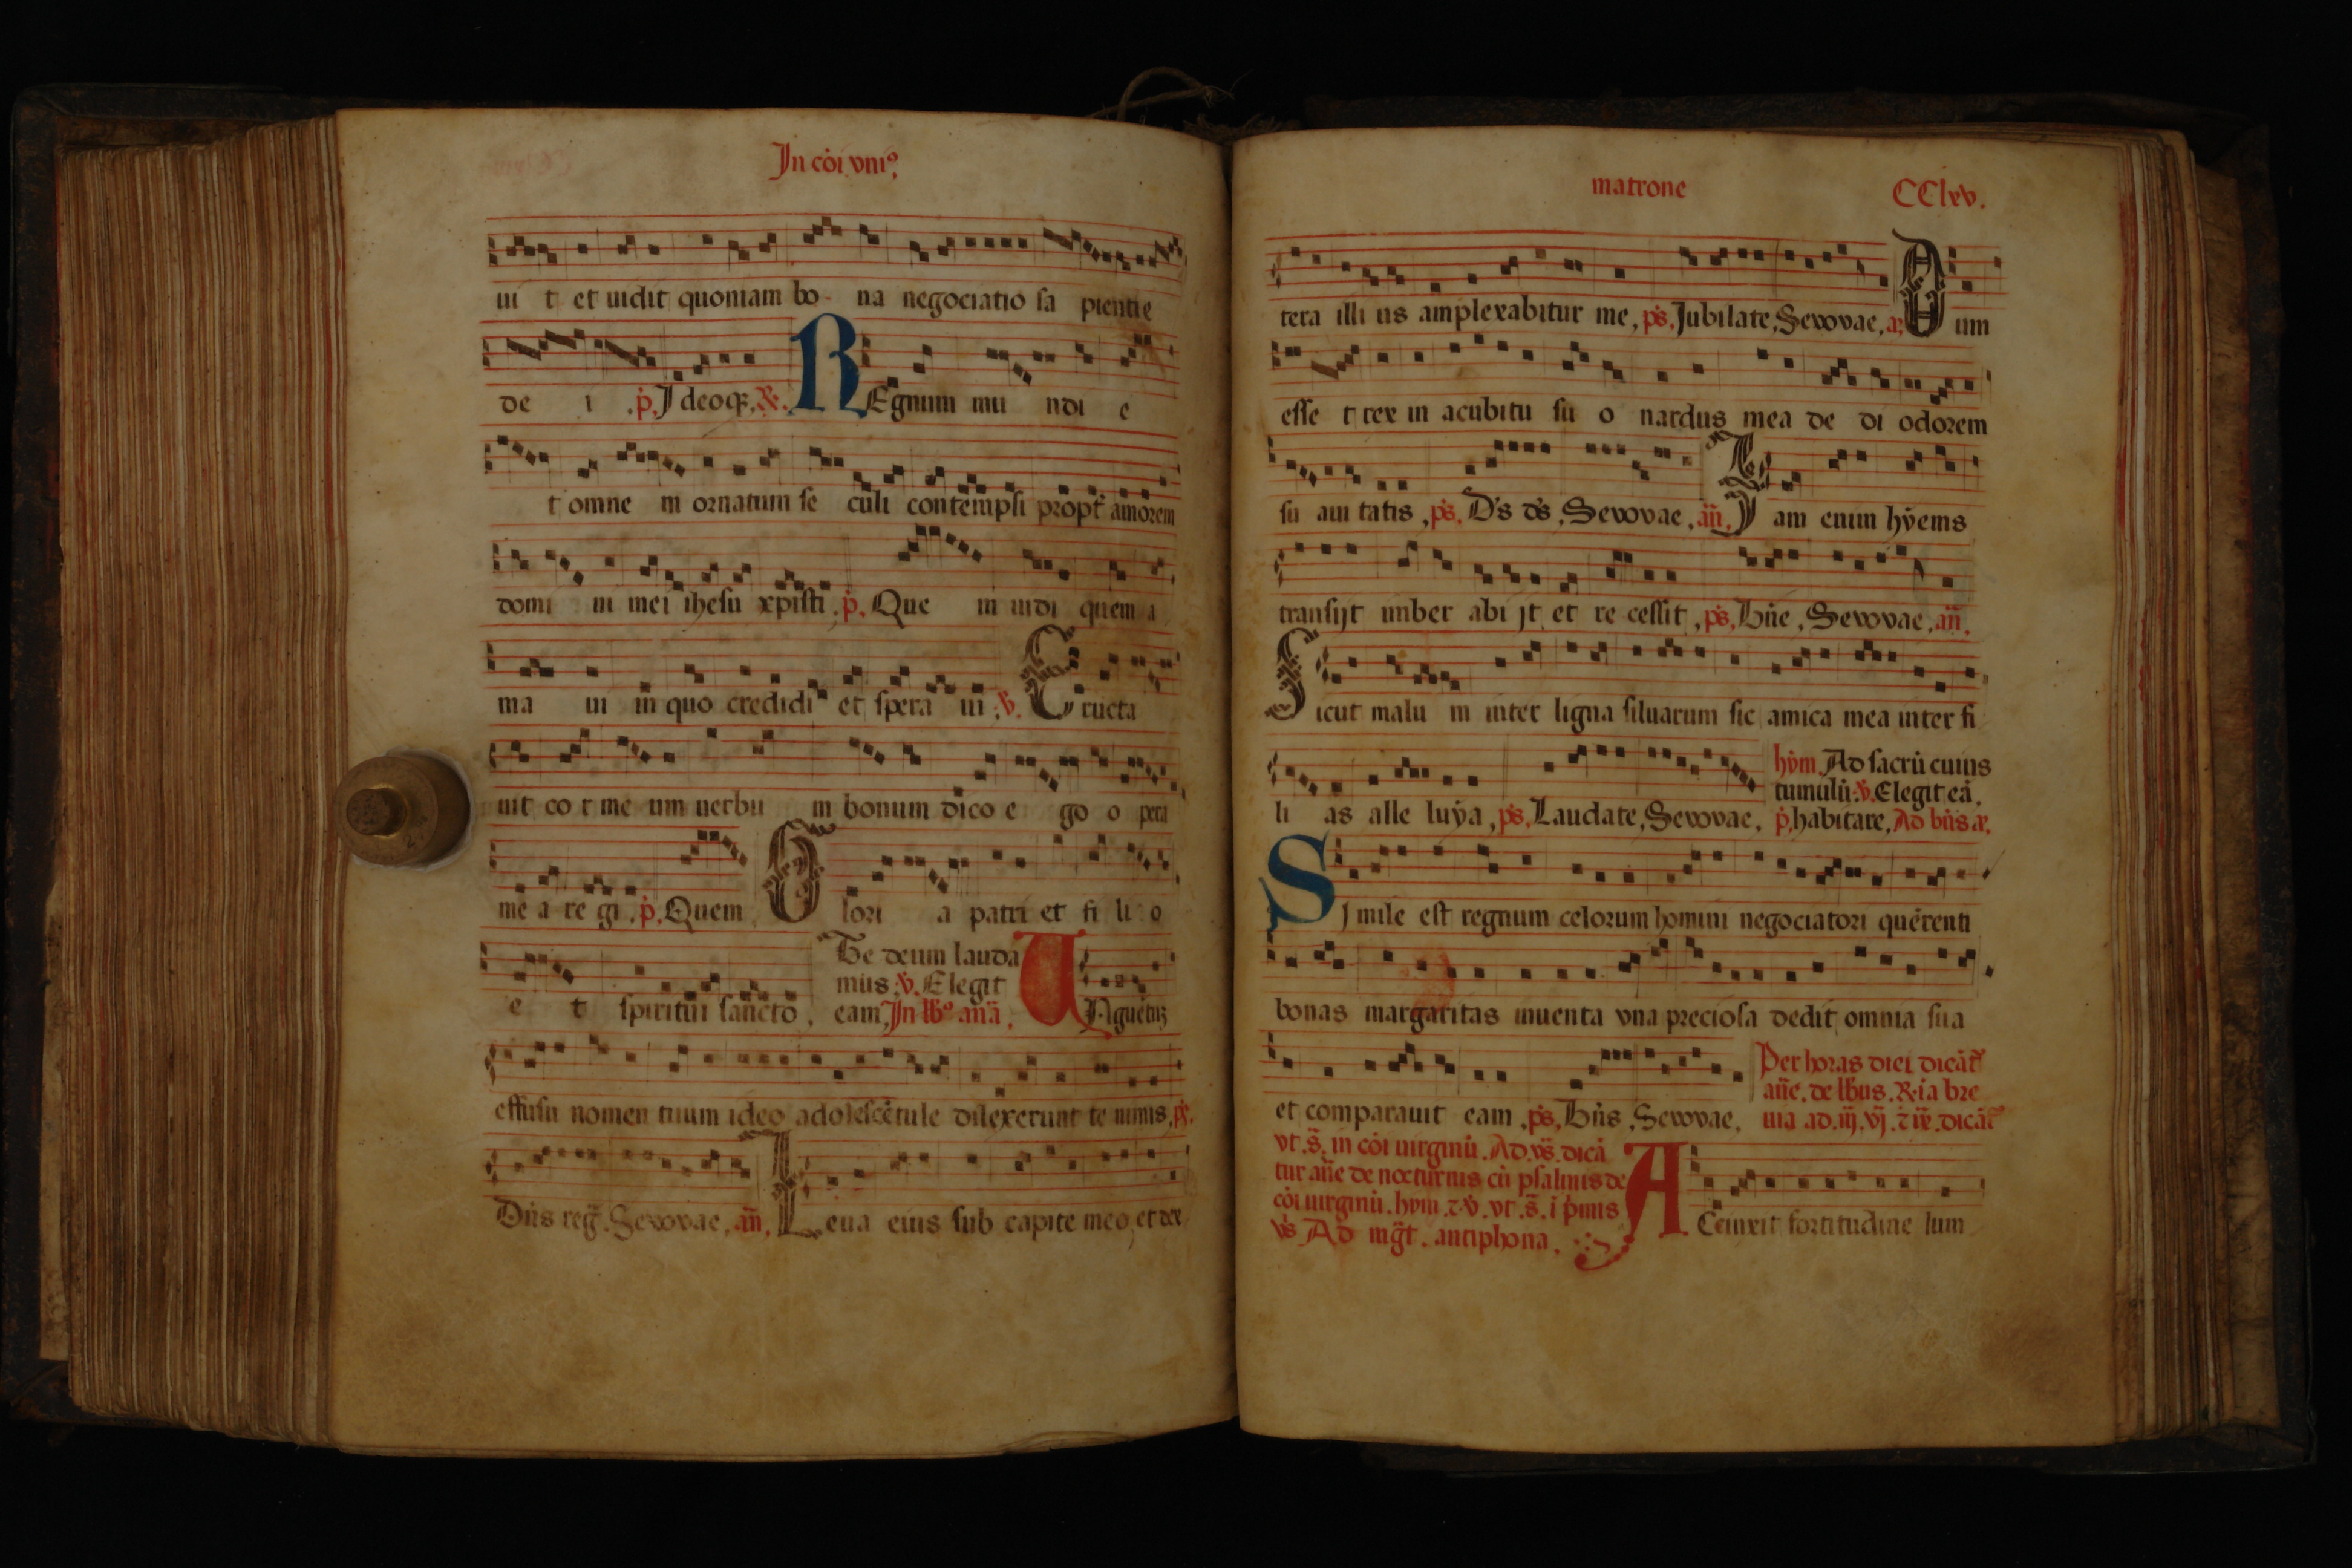 In cōi vniꝰ
ui t et uidit quoniam bo na negociatio sa pientie
de i .p̄. Ideoqꝫ. ℟. REgnum mu ndi e
t omne m ornatum se culi contempsi propt̄ amorem
domi ni mei ihesu xpisti. p̄. Que m uidi quem a
ma ui in quo credidi et spera ui. ℣. Eructa
uit co r me um uerbu m bonum dico e go o pera
me a re gi. p̄. Quem Glori a patri et fi li o
e t spiritui sancto.
Te deum lauda
mus. ℣. Elegit
eam, In lb̄ꝰ an̄a,
VNguētuꝫ
effusu nomen tuum ideo adolescētule dilexerunt te nimis, ps̄.
Dn̄s reg̃. Sevovae, an̄, Leua eius sub capite meo et dex
matrone CClxv.
tera illi us amplexabitur me, ps̄, Jubilate, Sevovae, a, Dum
esse t rex in acubitu su o nardus mea de di odorem
su aui tatis, ps̄. D's d's, Sevovae, an̄, Jam enim hyems
transijt imber abi jt et re cessit, ps̄, Hn̄e, Sevovae, an̄,
Sicut malu m inter ligna siluarum sic amica mea inter fi
li as alle luya, ps̄, Laudate, Sevovae,
hym. Ad sacrū cuius
tumulū: ℣. Elegit eā,
p̄, habitare, Ad bn̄s a,
Simile est regnum celorum homini negociatori querenti
bonas margaritas inuenta vna preciosa dedit omnia sua
et comparauit eam, ps̄, Bn̄s, Sevovae,
Per horas diei dicāt̄
an̄e. de lb̄us. R.ia bre
uia ad. iij. vj. ⁊ ix. dicāt̄
vt. s̄. in cōi uirginū. Ad. vs̄. dicā
tur an̄e de nocturnis cū psalmis de
cōi uirginū. hym. ⁊ ℣. vt. s̄. i p̄mis
vs̄ Ad mg̃t. antiphona.
ACcinxit fortitudine lum